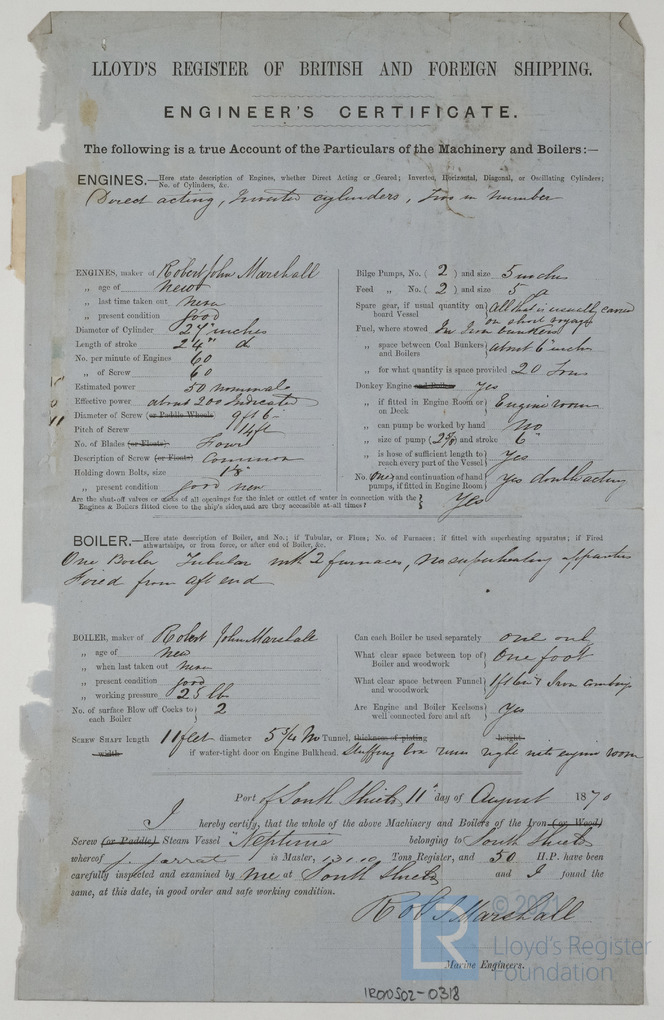 LLOYD'S REGISTER OF BRITISH AND FOREIGN SHIPPING.
ENGINEER'S CERTIFICATE.
The following is a true Account of the Particulars of the Machinery and Boilers:—
ENGINES.—Here state description of Engines, whether Direct Acting or Geared; Inverted, Horizontal, Diagonal, or Oscillating Cylinders;
No. of Cylinders, &c.
Direct acting, Inverted cylinders, Two in number
ENGINES, maker of Robert John Marshall
„ age of new
„ last time taken out new
„ present condition good
Diameter of Cylinder 24 inches
Length of stroke 24" do
No. per minute of Engines 60
„ of Screw 60
Estimated power 50 nominal
Effective power about 200 Indicated
Diameter of Screw (or Paddle Wheels) 9ft 6
Pitch of Screw 14ft
No. of Blades (or Floats) Four
Description of Screw (or Floats) Common
Holding down Bolts, size
„ present condition good new
Bilge Pumps, No. ( 2 ) and size 5 inches
Feed „ No. ( 2 ) and size 5
Spare gear, if usual quantity on board Vessel } All that is usually carried on short voyages
Fuel, where stowed In Iron bunkers
„ space between Coal Bunkers and Boilers } about 6 inches
„ for what quantity is space provided 20 Tons
Donkey Engine and Boiler Yes
„ if fitted in Engine Room or on Deck } Engine room
„ can pump be worked by hand No
„ size of pump ( ) and stroke 6"
„ is hose of sufficient length to reach every part of the Vessel } Yes
No. One and continuation of hand pumps, if fitted in Engine Room } Yes double acting
Are the shut-off valves or cocks of all openings for the inlet or outlet of water in connection with the
Engines & Boilers fitted close to the ship's sides, and are they accessible at all times? } Yes
BOILER.—Here state description of Boiler, and No.; if Tubular, or Flues; No. of Furnaces; if fitted with superheating apparatus; if Fired
athwartships, or from force, or after end of Boiler, &c.
One Boiler Tubular with 2 furnaces, No superheating apparatus
Fired from aft end
BOILER, maker of Robert John Marshall
„ age of new
„ when last taken out new
„ present condition good
„ working pressure 25 lb
No. of surface Blow off Cocks to each Boiler } 2
Can each Boiler be used separately one only
What clear space between top of Boiler and woodwork } One foot
What clear space between Funnel and wooodwork } 1ft 6in Iron combings
Are Engine and Boiler Keelsons well connected fore and aft } Yes
SCREW SHAFT length 11 feet diameter No Tunnel, thickness of plating height
width if water-tight door on Engine Bulkhead. Stuffing box runs right into engine room
Port of South Shields 11" day of August 1870
I hereby certify, that the whole of the above Machinery and Boilers of the Iron (or Wood)
Screw (or Paddle) Steam Vessel "Neptune belonging to South Shields
whereof is Master, Tons Register, and 50 H.P. have been
carefully inspected and examined by me at South Shields and I found the
same, at this date, in good order and safe working condition.
Rob J Marshall
Marine Engineers.
© 2021
LR
Lloyd's Register
Foundation
IROO502-0318